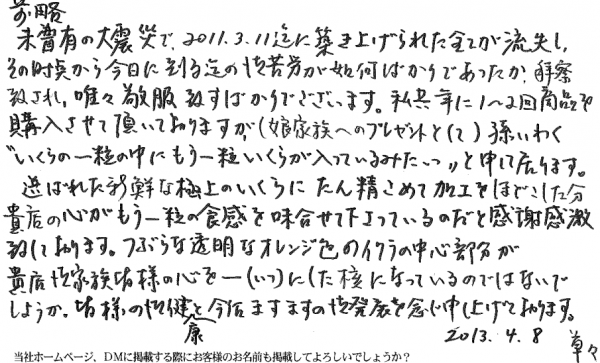 前略
未曽有の大震災で、2011.3.11迄に築き上げられた全てが流失し、
その時点から今日に到る迄の御苦労が如何ばかりであったか、拝察
致され、唯々敬服致すばかりでございます。私共年に1〜2回商品を
購入させて頂いておりますが、(娘家族へのプレゼントとして)孫いわく
"いくらの一粒の中にもう一粒いくらが入っているみたいっ"と申して居ります。
選ばれた新鮮な極上のいくらにたん精こめて加工をほどこした分
貴店の心がもう一粒の食感を味合せて下さっているのだと感謝感激
致しております。つぶらな透明なオレンジ色のイクラの中心部分が
貴店御家族皆様の心を一(いつ)にした核になっているのではないで
しょうか。皆様の御健康と今后ますますの御発展を念じ申し上げております。
2013.4.8 草々
当社ホームページ、DMに掲載する際にお客様のお名前も掲載してよろしいでしょうか?